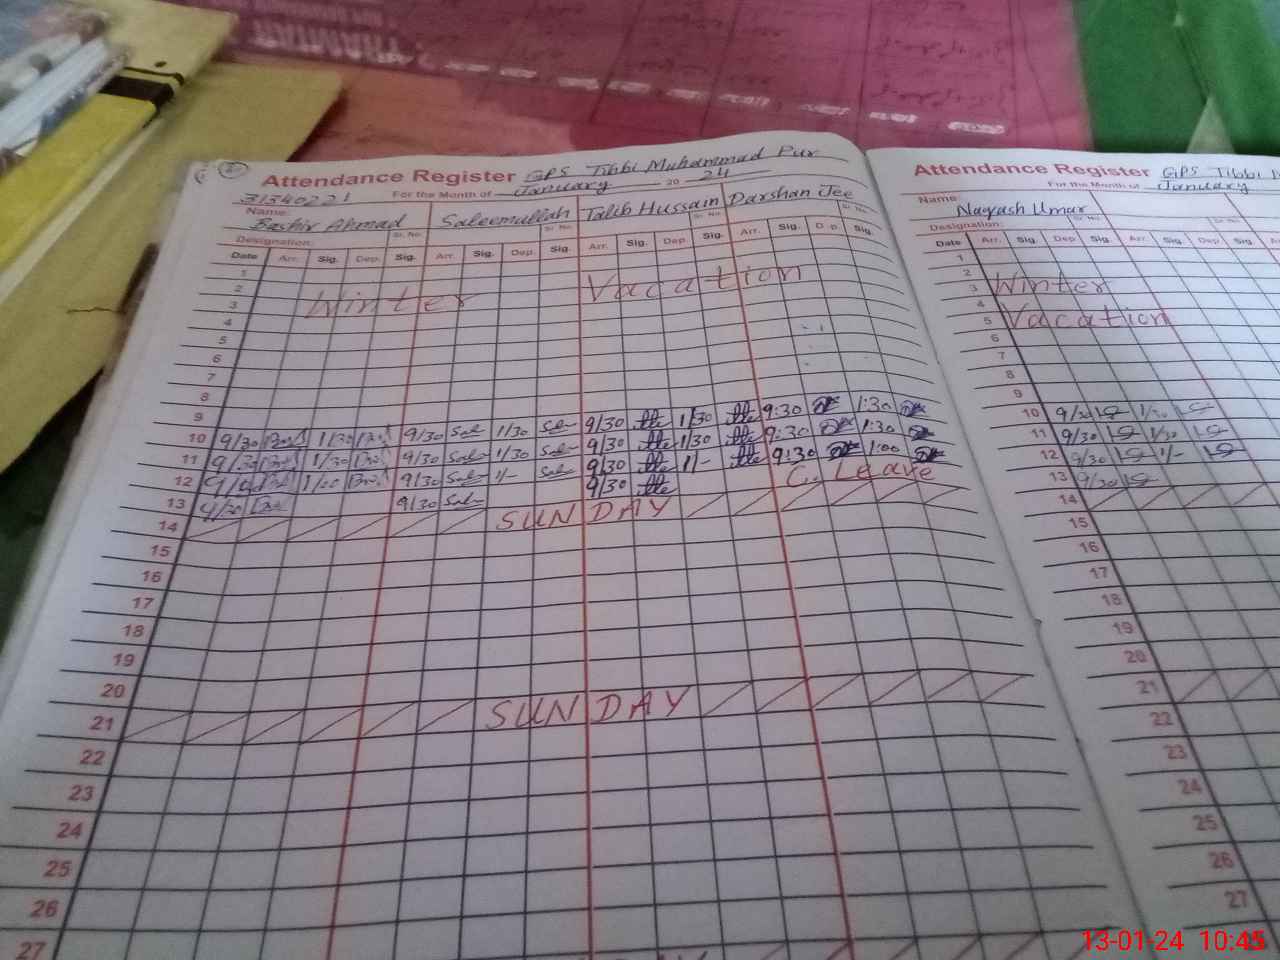 Attendance Register GPS Tibbi Muhammad Pur
For the Month of January 20 24
31340221
Name: Bashir Ahmad Sr. No. Saleemullah Sr. No. Talib Hussain Sr. No. Darshan Jee Sr. No.
Designation:
Date Arr. Sig. Dep. Sig. Arr. Sig. Dep. Sig. Arr. Sig. Dep. Sig. Arr. Sig. Dep. Sig.
1
2
3
Winter Vacation
4
5
6
7
8
9
10 9/30 1/30 9/30 Sal 1/30 Sal 9/30 1/30 9:30 1:30
11 9/30 1/30 9/30 Sal 1/30 Sal 9/30 1/30 9:30 1:30
12 9/30 1/00 9/30 Sal 1/- Sal 9/30 1/- 9:30 1:00
13 9/30 9/30 Sal 9/30 C. Leave
14 SUNDAY
15
16
17
18
19
20
21 SUNDAY
22
23
24
25
26
27
Attendance Register GPS Tibbi
For the Month of January
Name Nayash Umar
Designation: Sr. No.
Date Arr. Sig. Dep. Sig. Arr. Sig. Dep. Sig.
1
2
3 Winter
4
5 Vacation
6
7
8
9
10 9/30 1/30
11 9/30 1/30
12 9/30 1/-
13 9/30
14
15
16
17
18
19
20
21
22
23
24
25
26
27
13-01-24 10:45